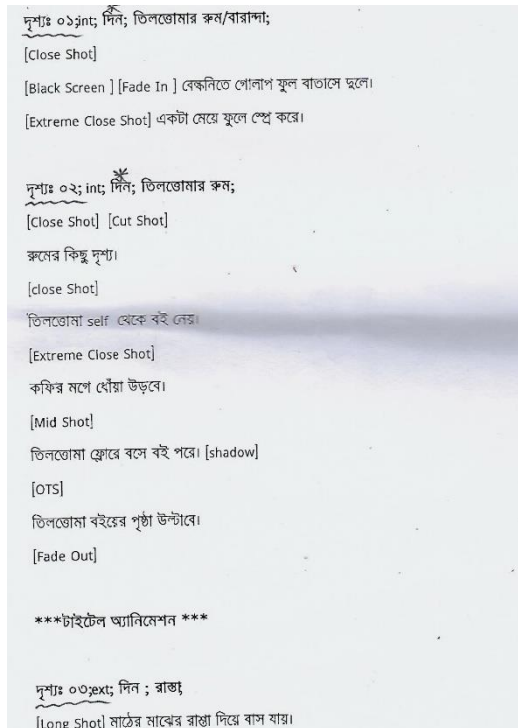 দৃশ্যঃ ০১;int; দিন; তিলত্তোমার রুম/বারান্দা;
[Close Shot]
[Black Screen ] [Fade In ] বেল্কনিতে গোলাপ ফুল বাতাসে দুলে।
[Extreme Close Shot] একটা মেয়ে ফুলে স্প্রে করে।
দৃশ্যঃ ০২; int; দিন; তিলত্তোমার রুম;
[Close Shot] [Cut Shot]
রুমের কিছু দৃশ্য।
[close Shot]
তিলত্তোমা self থেকে বই নেয়।
[Extreme Close Shot]
কফির মগে ধোঁয়া উড়বে।
[Mid Shot]
তিলত্তোমা ফ্লোরে বসে বই পরে। [shadow]
[OTS]
তিলত্তোমা বইয়ের পৃষ্ঠা উল্টাবে।
[Fade Out]
***টাইটেল অ্যানিমেশন ***
দৃশ্যঃ ০৩;ext; দিন ; রাস্তা;
[Long Shot] মাঠের মাঝের রাস্তা দিয়ে বাস যায়।